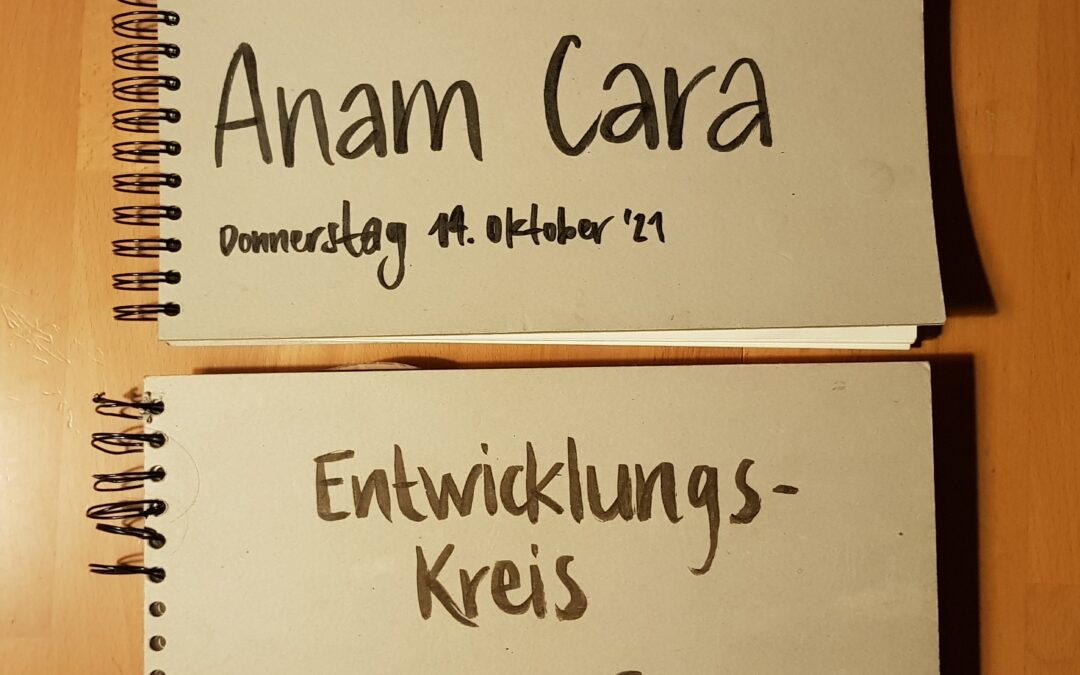 Anam Cara
Donnerstag 14. Oktober '21
Entwicklungs-
Kreis